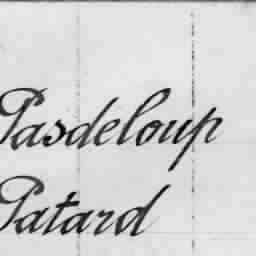 Pasdeloup
Patard